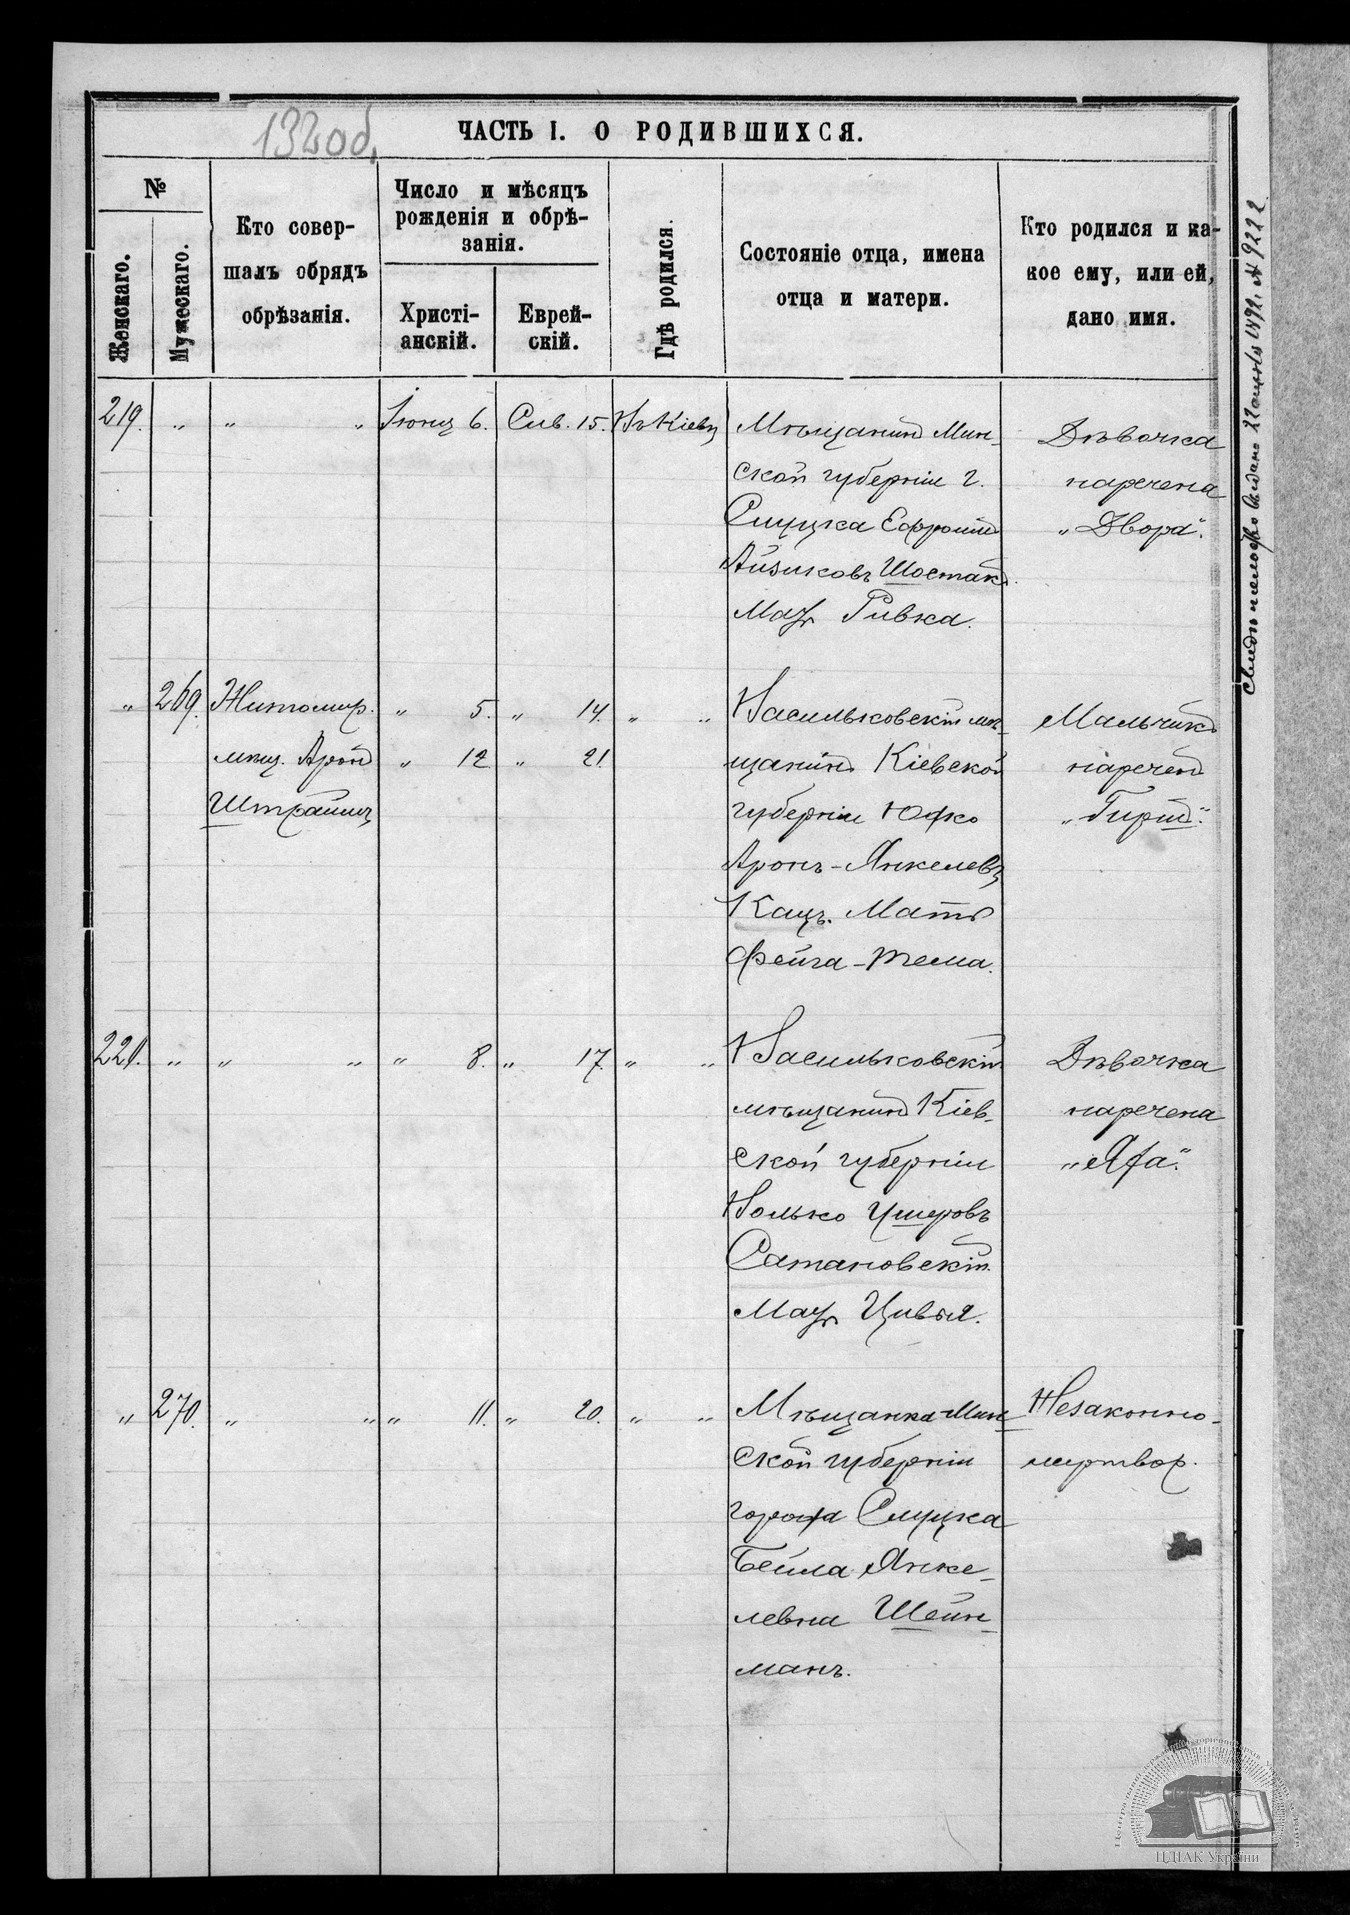 132об.
ЧАСТЬ I. О РОДИВШИХСЯ.
№
Женскаго.
Мужескаго.
Кто совер-
шалъ обрядъ
обрѣзанія.
Число и мѣсяцъ
рожденія и обрѣ-
занія.
Христі-
анскій.
Еврей-
скій.
Гдѣ родился.
Состояніе отца, имена
отца и матери.
Кто родился и ка-
кое ему, или ей,
дано имя.
219. „ „ „ Іюня 6. Сив. 15. Въ Кіевѣ
Мѣщанинъ Мин-
ской губерніи г.
Слуцка Ефроимъ
Айзиковъ Шостакъ.
Мать Ривка.
Дѣвочка
наречена
„Двора“.
„ 269. Житомир. „ 5. „ 14. „ „
мѣщ. Аронъ „ 12 „ 21.
Штраймъ
Васильковскій мѣ-
щанинъ Кіевской
губерніи Юдко
Аронъ-Янкелевъ
Кацъ. Мать
Фейга-Тема.
Мальчикъ
нареченъ
„Гиршъ“.
220. „ „ „ „ 8. „ 17. „ „
Васильковскій
мѣщанинъ Кіев-
ской губерніи
Волько Ушеровъ
Сатановскій.
Мать Цивья.
Дѣвочка
наречена
„Яфа“.
„ 270. „ „ „ 11. „ 20. „ „
Мѣщанка Мин-
ской губерніи
города Слуцка
Бейла Янке-
левна Шейн-
манъ.
Незаконно-
мертвор.
№ 9222
ЦДІАК України